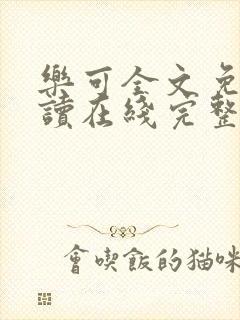 樂可全文免
讀在綫完整
會喫飯的猫咪